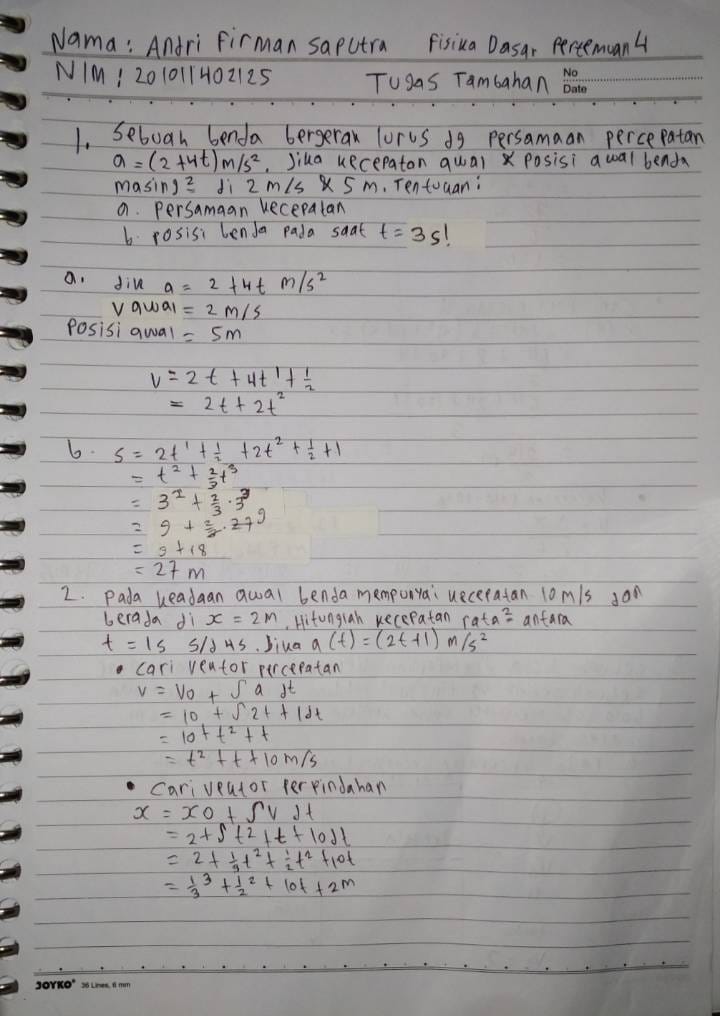 Nama : Andri Firman Saputra Fisika Dasar Pertemuan 4
NIM : 201011402125 Tugas Tambahan No
Date
1. Sebuah benda bergerak lurus dg persamaan percepatan
a = (2+4t) m/s². Jika kecepatan awal & posisi awal benda
masing² di 2 m/s & 5 m. Tentukan :
a. Persamaan kecepatan
b. posisi benda pada saat t = 3s!
a. dik a = 2 + 4t m/s²
v awal = 2 m/s
Posisi awal = 5m
v = 2t + 4t¹ + ½
= 2t + 2t²
b. s = 2t¹ + ½ + 2t² + ½ + 1
= t² + ⅔t³
= 3² + ⅔ · 3³
= 9 + ⅔ · 27 9
= 9 + 18
= 27 m
2. Pada keadaan awal benda mempunyai kecepatan 10 m/s dan
berada di x = 2m. Hitunglah kecepatan rata² antara
t = 1s s/d 4s. Jika a (t) = (2t+1) m/s²
• Cari vektor percepatan
v = vo + ∫ a dt
= 10 + ∫ 2t + 1 dt
= 10 + t² + t
= t² + t + 10 m/s
• Cari vektor perpindahan
x = xo + ∫ v dt
= 2 + ∫ t² + t + 10 dt
= 2 + ⅓t² + ½t² + 10t
= ⅓³ + ½² + 10t + 2m
JOYKO® 36 Lines, 6 mm